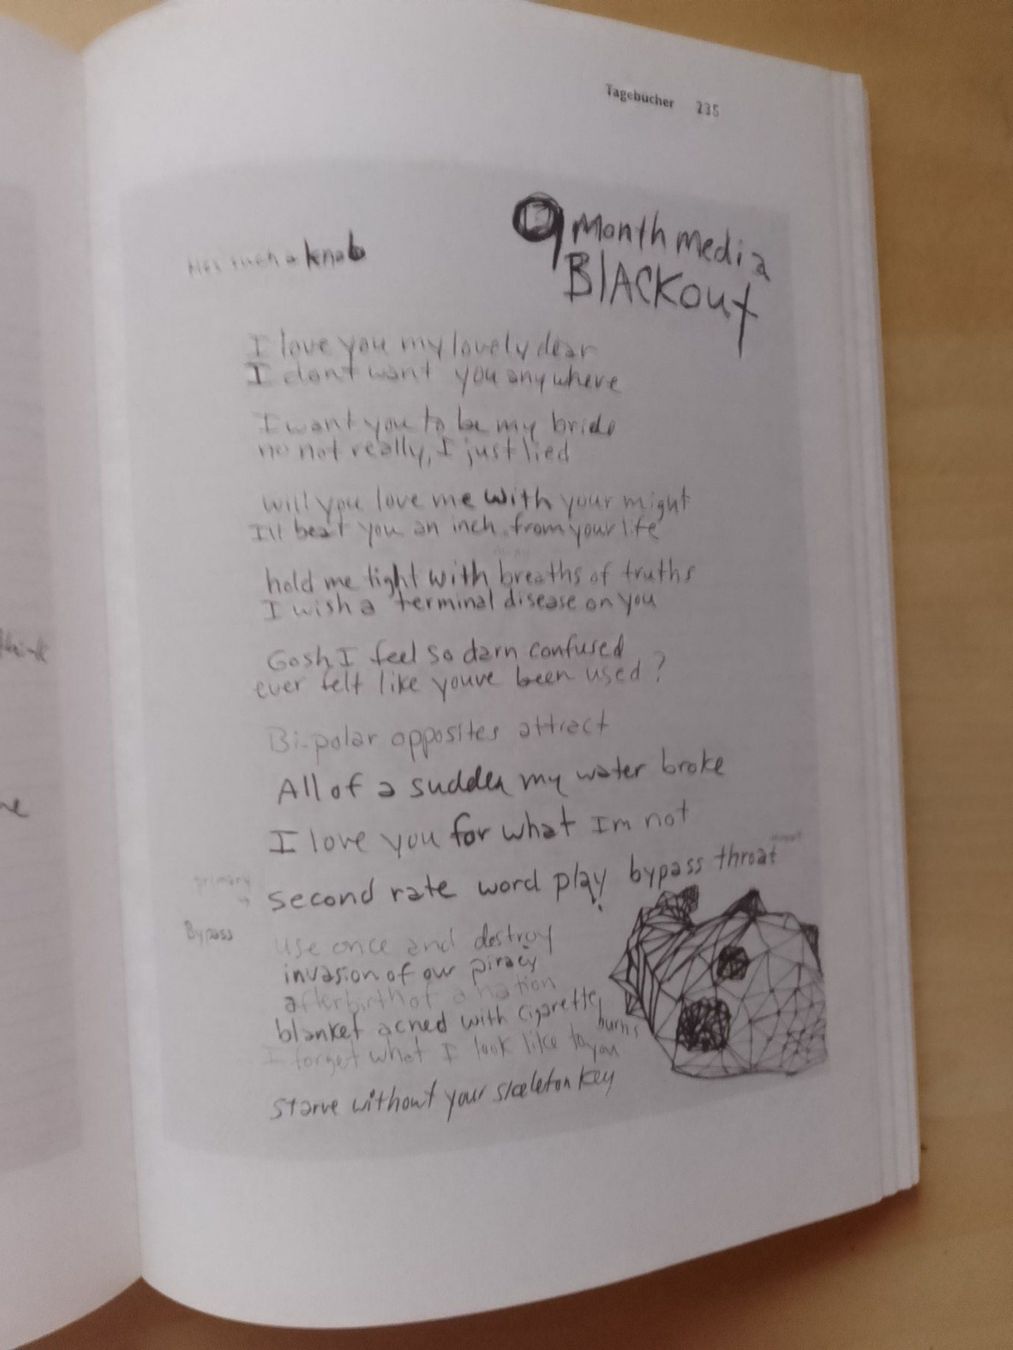 Tagebücher 235
9 Month media
BLACKout
such a knab
I love you my lovely dear
I dont want you anywhere
I want you to be my bride
no not really, I just lied
will you love me with your might
Ill beat you an inch from your life
hold me tight with breaths of truths
I wish a terminal disease on you
Gosh I feel so darn confused
ever felt like youve been used?
Bi-polar opposites attract
All of a sudden my water broke
I love you for what Im not
second rate word play bypass throat
primary
Bypass
use once and destroy
invasion of our piracy
afterbirth of a nation
blanket acned with cigarette burns
I forget what I look like to you
starve without your skeleton key
think